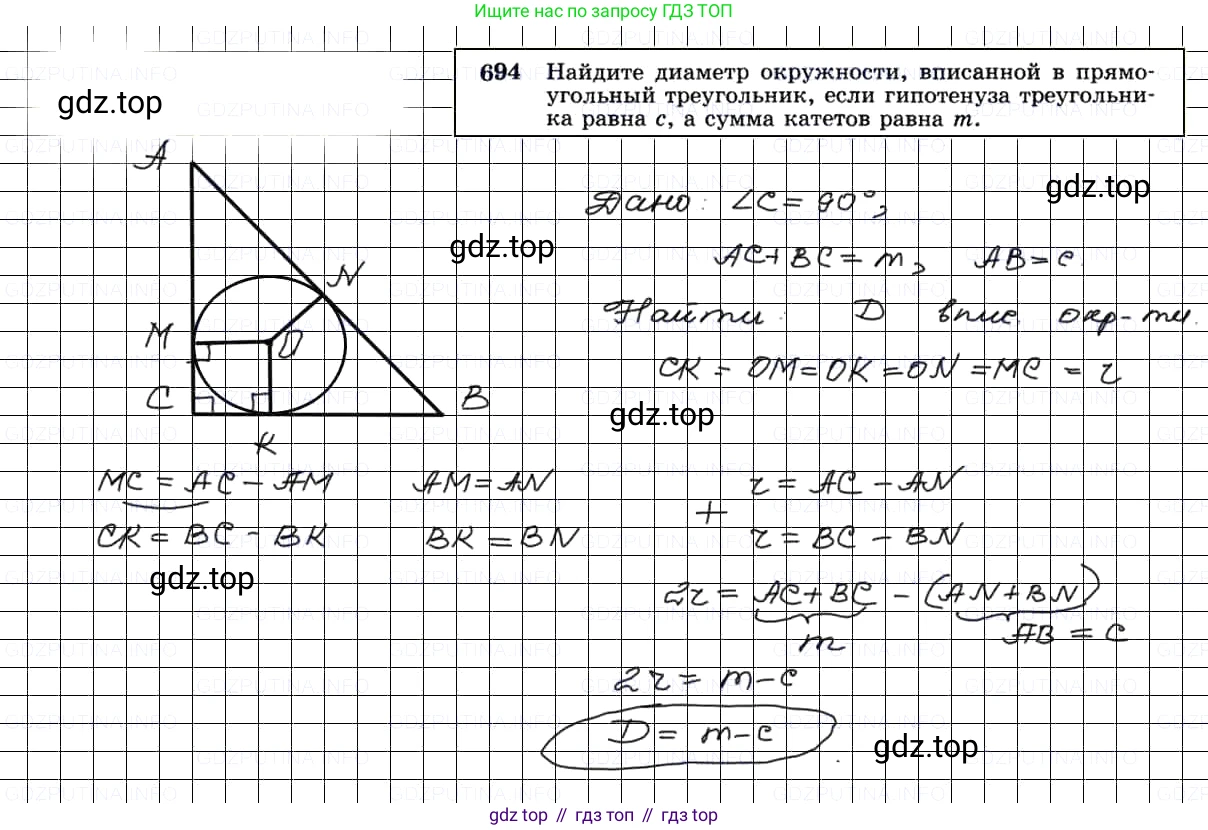 Ищите нас по запросу ГДЗ ТОП
694 Найдите диаметр окружности, вписанной в прямо-
угольный треугольник, если гипотенуза треугольни-
ка равна c, а сумма катетов равна m.
gdz.top
Дано: ∠C = 90°,
gdz.top
gdz.top
AC + BC = m, AB = c.
Найти: D впис. окр-ти.
CK = OM = OK = ON = MC = r
gdz.top
A
N
M
O
C
B
K
MC = AC - AM
AM = AN
r = AC - AN
+
CK = BC - BK
BK = BN
r = BC - BN
gdz.top
2r = AC + BC - (AN + BN)
m
AB = c
2r = m - c
D = m - c
gdz.top
gdz top // гдз топ // gdz top